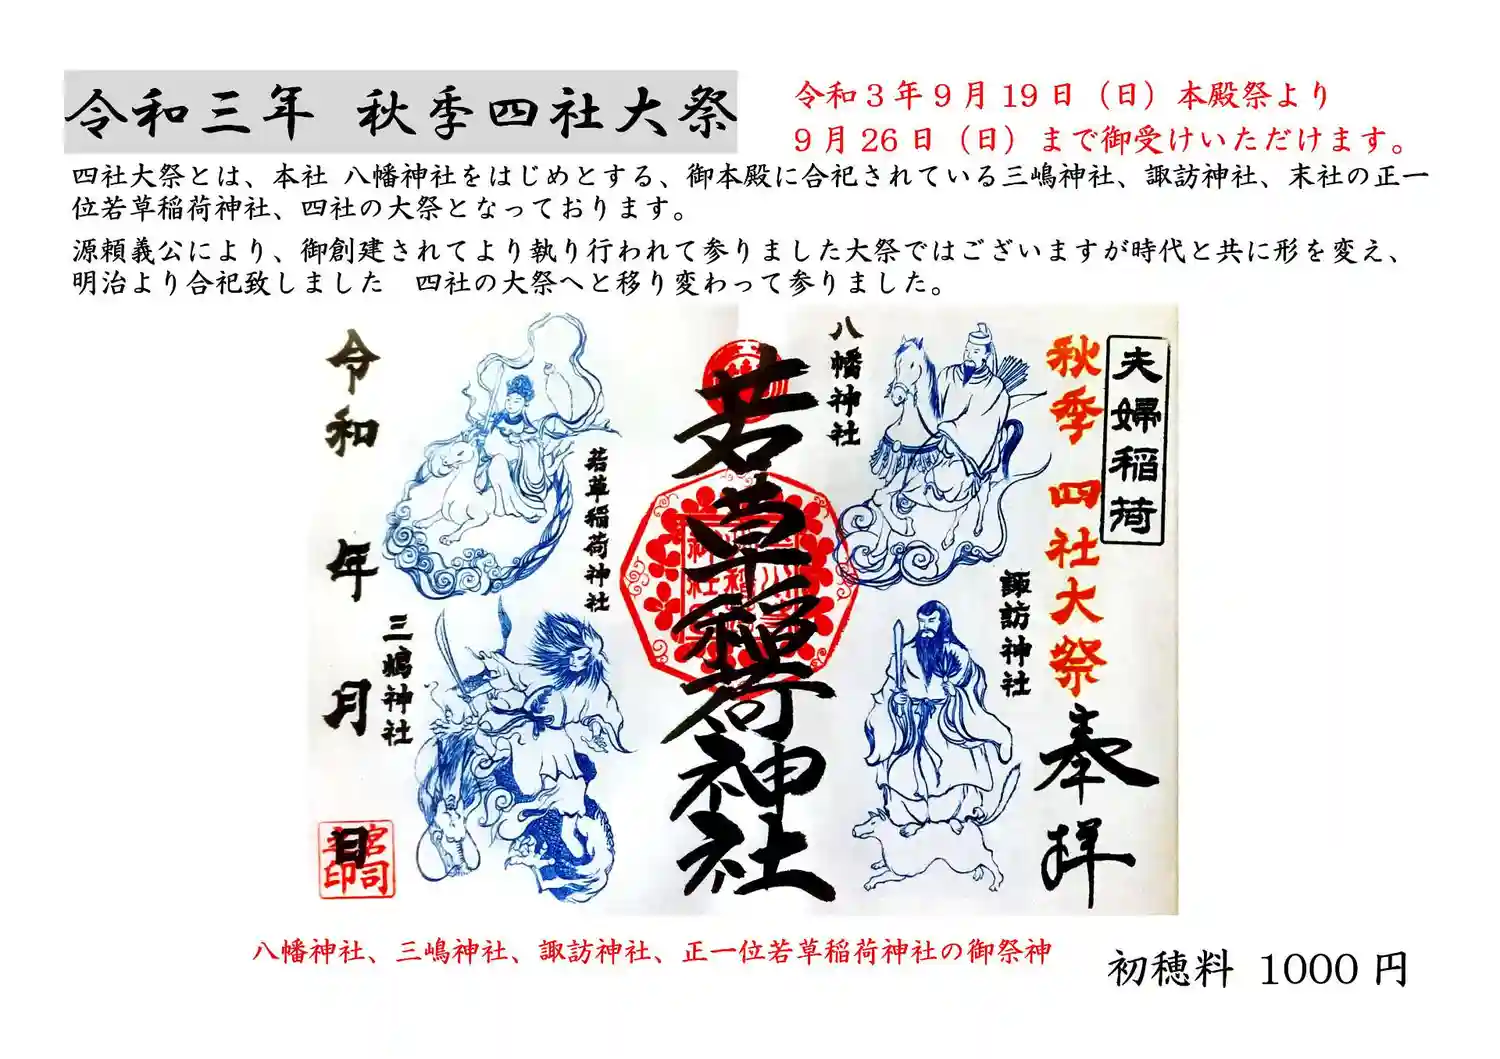 令和三年 秋季四社大祭
令和3年9月19日（日）本殿祭より
9月26日（日）まで御受けいただけます。
四社大祭とは、本社 八幡神社をはじめとする、御本殿に合祀されている三嶋神社、諏訪神社、末社の正一
位若草稲荷神社、四社の大祭となっております。
源頼義公により、御創建されてより執り行われて参りました大祭ではございますが時代と共に形を変え、
明治より合祀致しました　四社の大祭へと移り変わって参りました。
夫婦稲荷
秋季 四社大祭
奉拝
八幡神社
諏訪神社
若草稲荷神社
若草稲荷神社
三嶋神社
令和 年 月 日
宮司
印
八幡神社、三嶋神社、諏訪神社、正一位若草稲荷神社の御祭神
初穂料 1000円